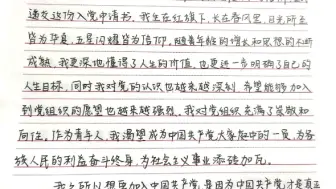 递交这份入党申请书。我生在红旗下,长在春风里,目光所至
皆为华夏,五星闪耀皆为信仰。随着年龄的增长和思想的不断
成熟,我更深地懂得了人生的价值,也更进一步明确了自己的
人生目标,同时我对党的认识也越来越深刻,希望能够加入
到党组织的愿望也越来越强烈。我对党组织充满了崇敬和
向往。作为青年人,我渴望成为中国共产党大家庭中的一员,为各
族人民的利益奋斗终身,为社会主义事业添砖加瓦。
我之所以想要加入中国共产党,是因为中国共产党才是真正